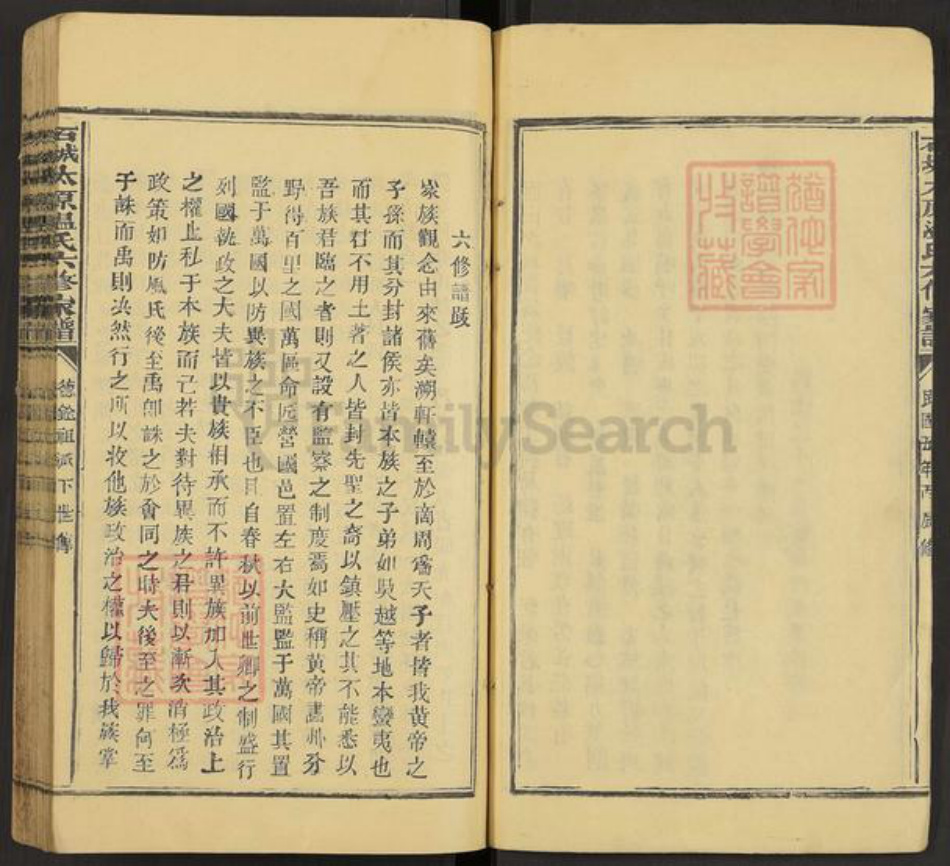 六修譜跋
家族觀念由來舊矣溯軒轅至於商周爲天子者皆我黄帝之
子孫而其分封諸侯亦皆本族之子弟如吳越等地本蠻夷也
而其君不用土著之人皆封先聖之裔以鎮壓之其不能悉以
吾族君臨之者則又設有監察之制度焉如史稱黄帝畫卦分
野得百里之國萬區命匠營國邑置左右大監監于萬國其置
監于萬國以防異族之不臣也且自春秋以前世卿之制盛行
列國執政之大夫皆以貴族相承而不許異族加入其政治上
之權止私于本族而己若夫對待異族之君則以漸次消極爲
政策如防風氏後至禹卽誅之於會同之時夫後至之罪何至
于誅而禹則決然行之所以收他族政治之權以歸於我族掌
石城太原温氏六修家譜
德銓祖派下世傳
FamilySearch